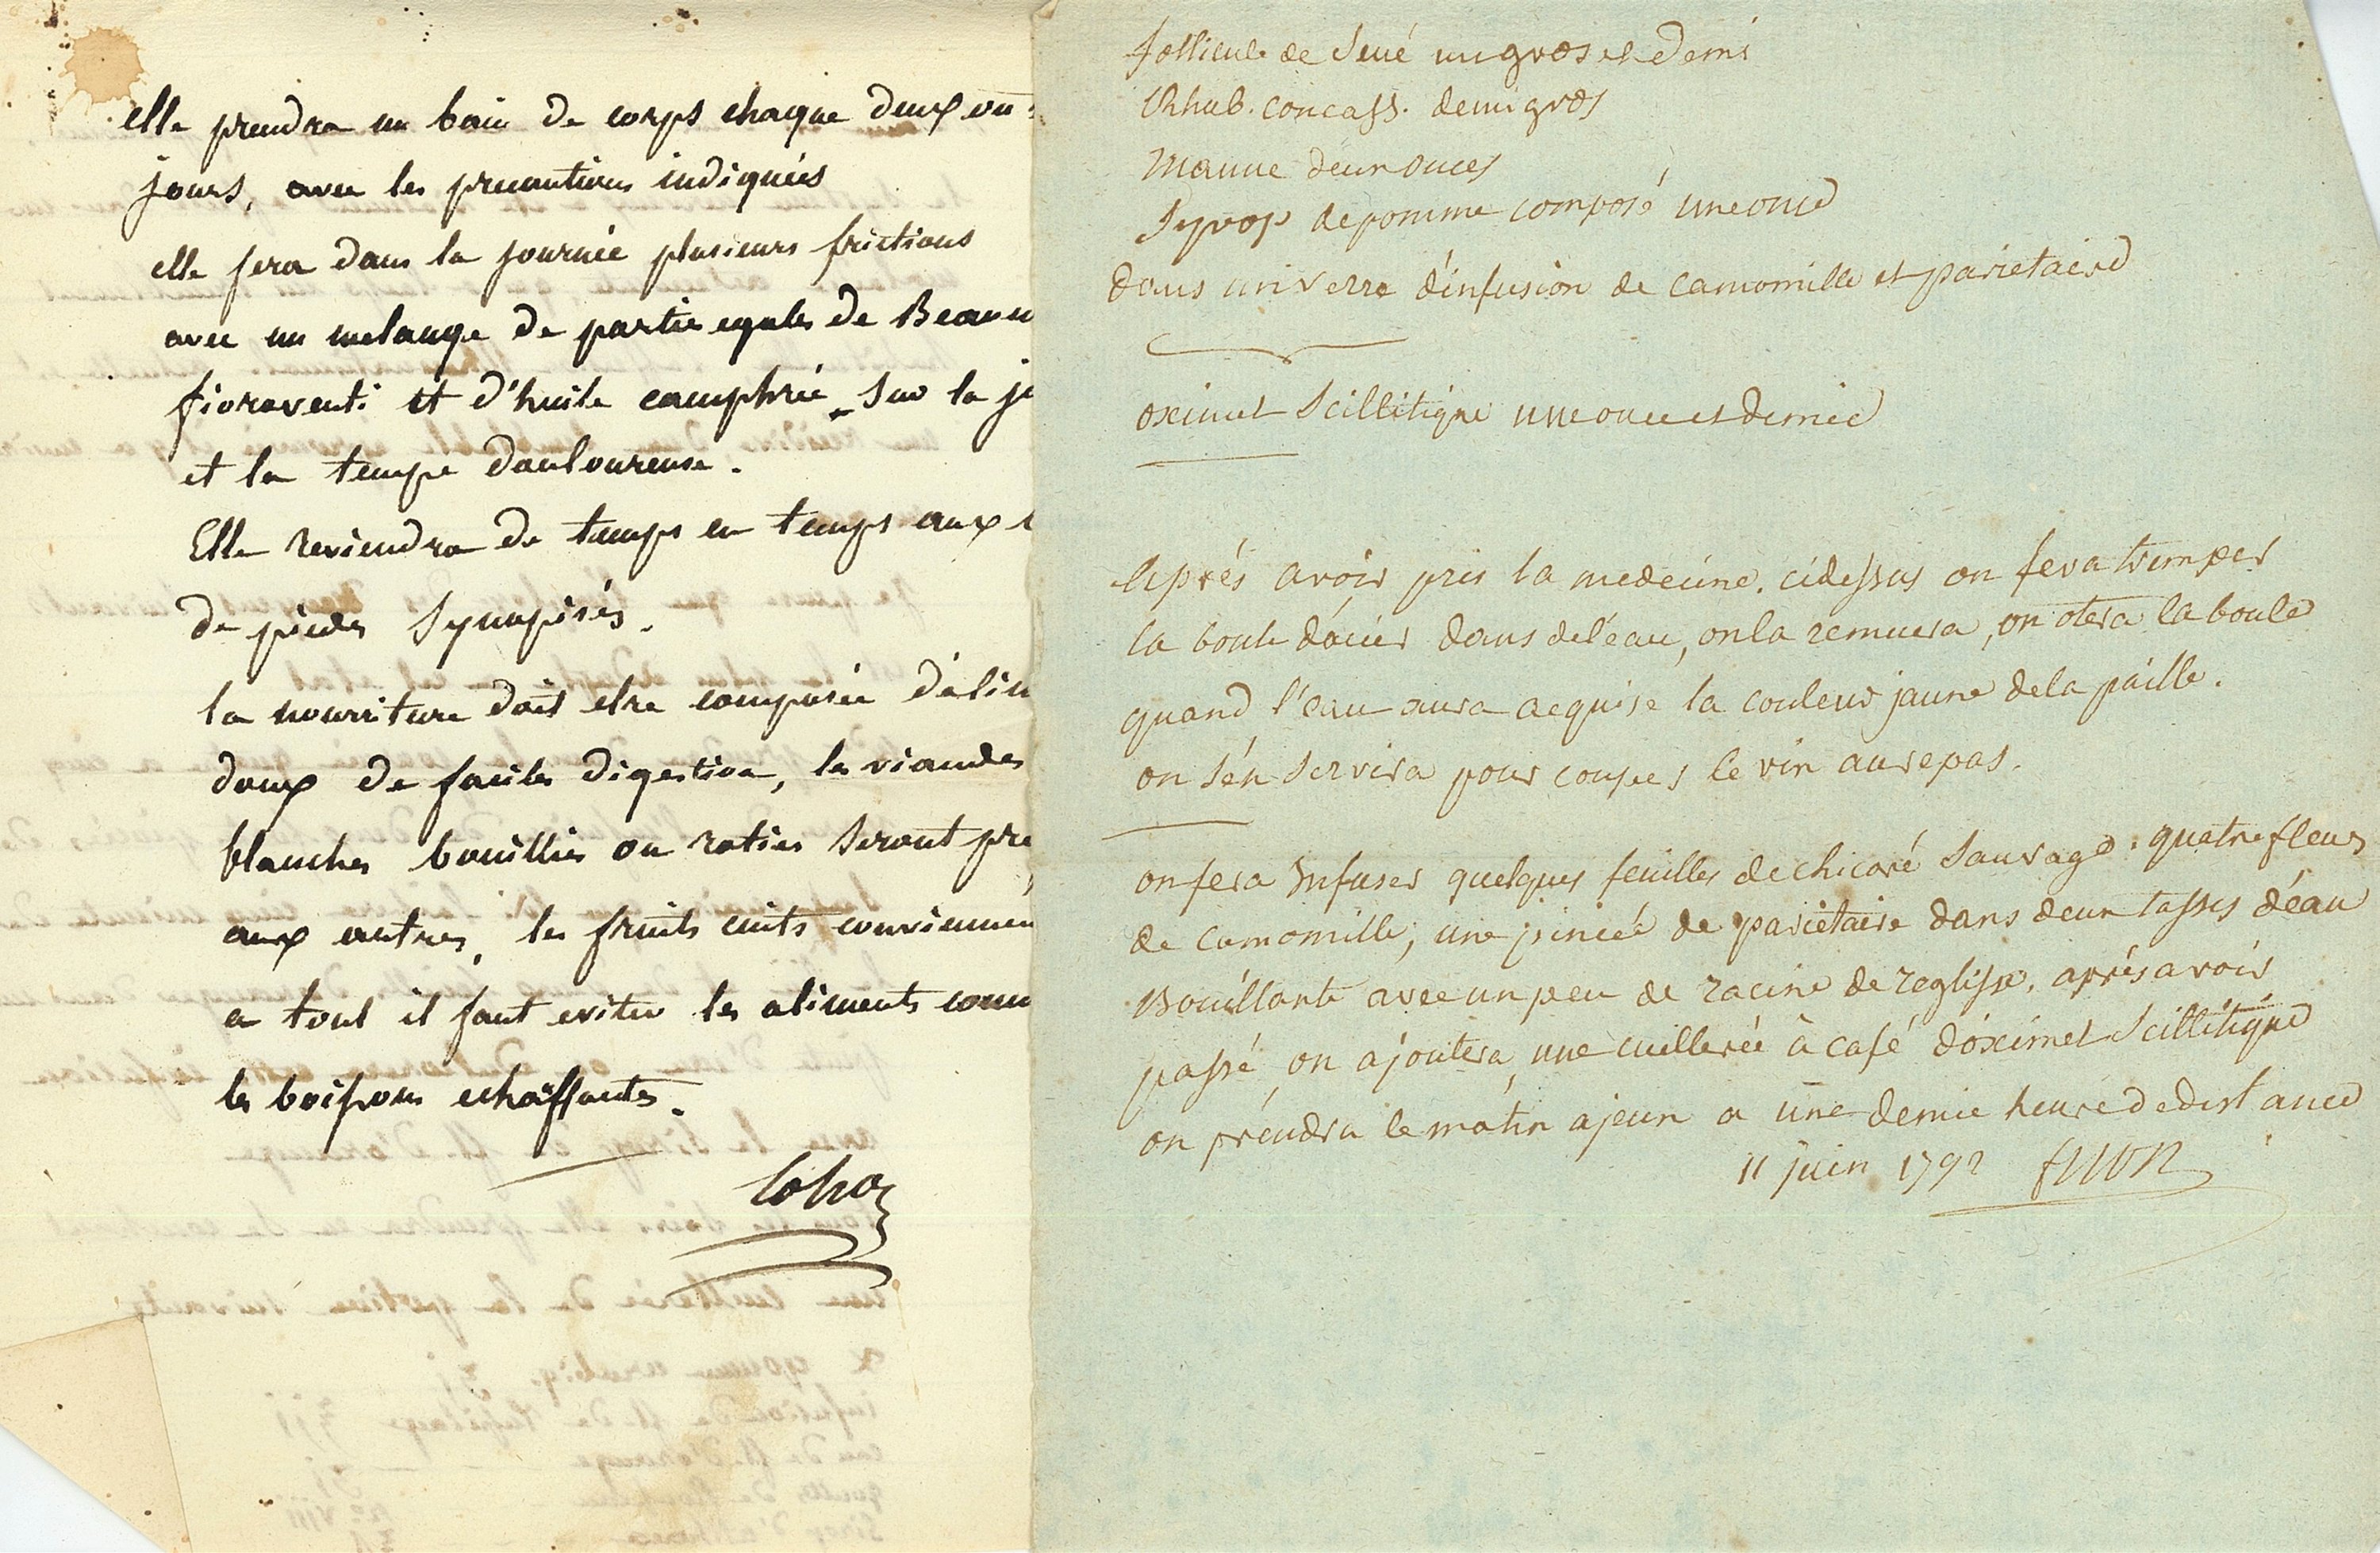 elle prendra un bain de corps chaque deux ou
jours, avec les precautions indiquées
elle fera dans la journée plusieurs frictions
avec un melange de partie egales de Beaum
fioraventi et d'huile camphrée sur la
et la tempe douloureuse.
Elle reviendra de temps en temps aux
de pieds Synapisés.
la nourriture doit etre composée d'alim
doux de faciles digestion, les viandes
blanches bouillies ou roties seront pre
aux autres, les fruits cuits conviennen
a tout il faut eviter les aliments comm
les boissons echauffantes.
follicule de Sené un gros et Demi
Rhub. concass. demi gros
Manne deux onces
Syrop de pomme composé une once
dans un verre d'infusion de camomille et parietaire
oximel Scillitique une once et demie
Aprés avoir pris la medecine. cidessus on fera tremper
la boule d'acier dans de l'eau, on la remuera, on otera la boule
quand l'eau aura acquise la couleur jaune de la paille.
on s'én servira pour couper le vin au repas.
on fera Infuser quelques feuilles de chicoré Sauvage. quatre fleurs
de camomille, une pincée de parietaire dans deux tasses d'éau
Bouillante avec un peu de racine de reglisse, aprés avoir
passé on ajoutera, une cuillerée à café d'oximel Scillitique
on préndra le matin a jeun a une demie heure de distance
11 juin 1792